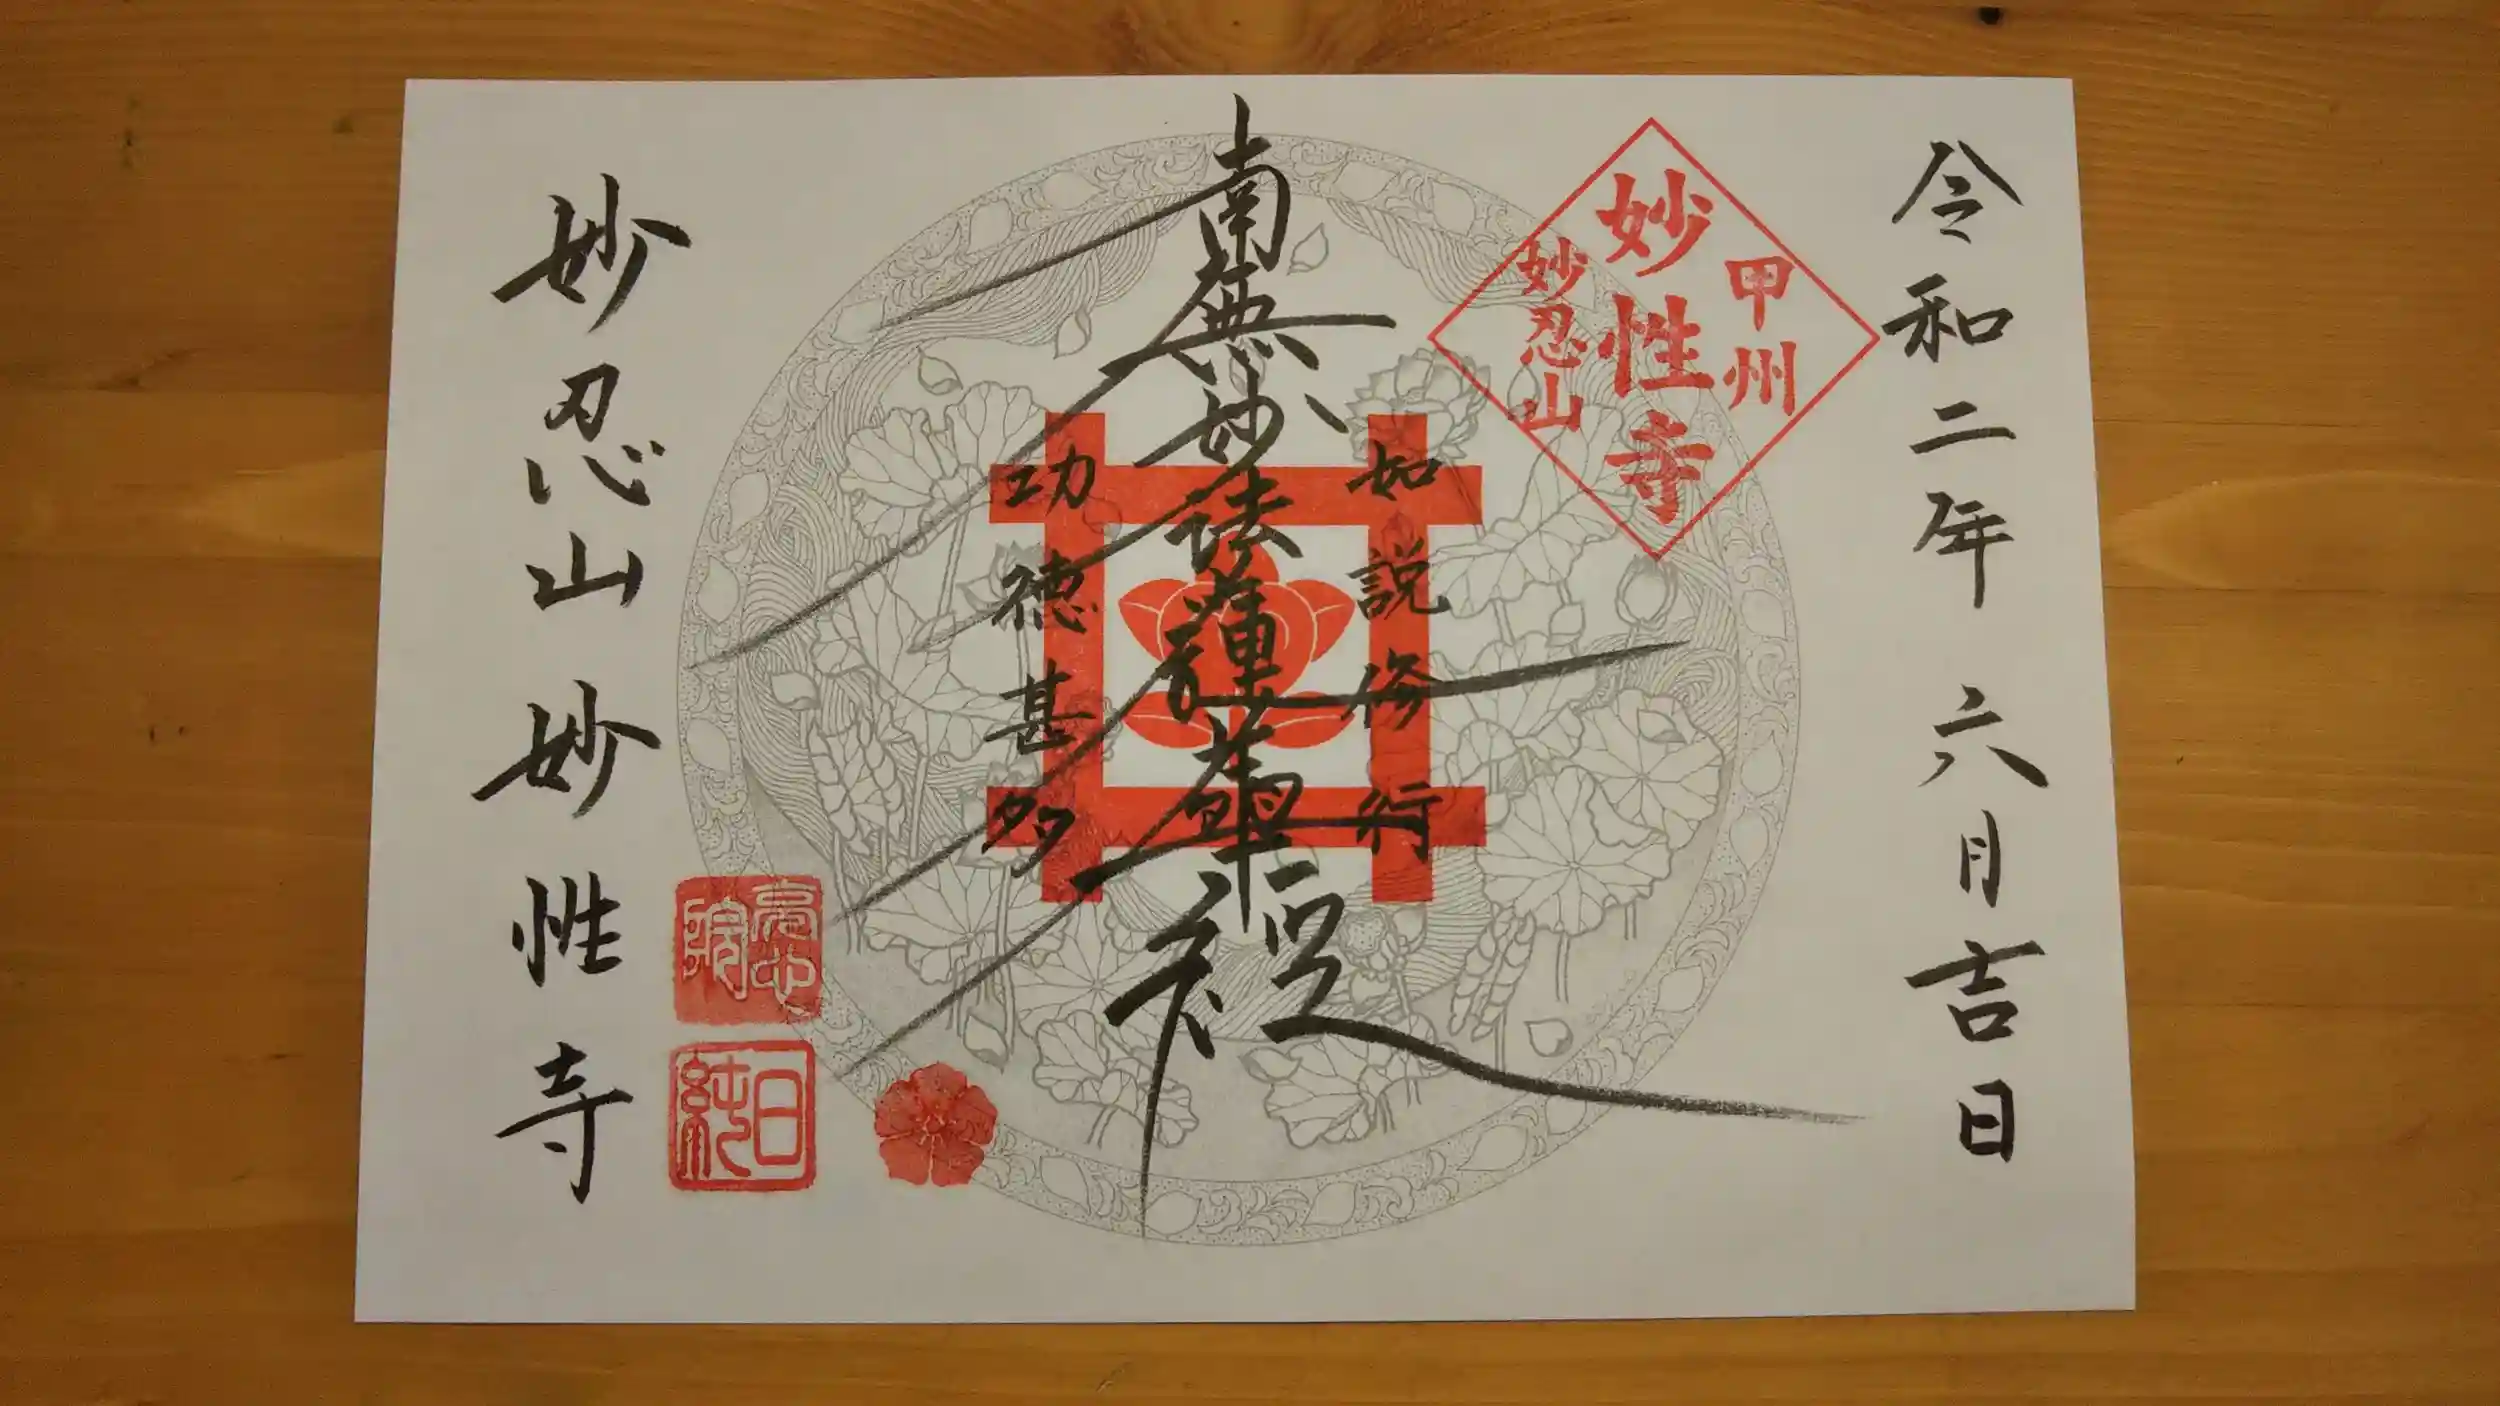 令和二年 六月吉日
甲州
妙性寺
妙忍山
如説修行
南無妙法蓮華経
功德甚多
妙忍山 妙性寺
日純